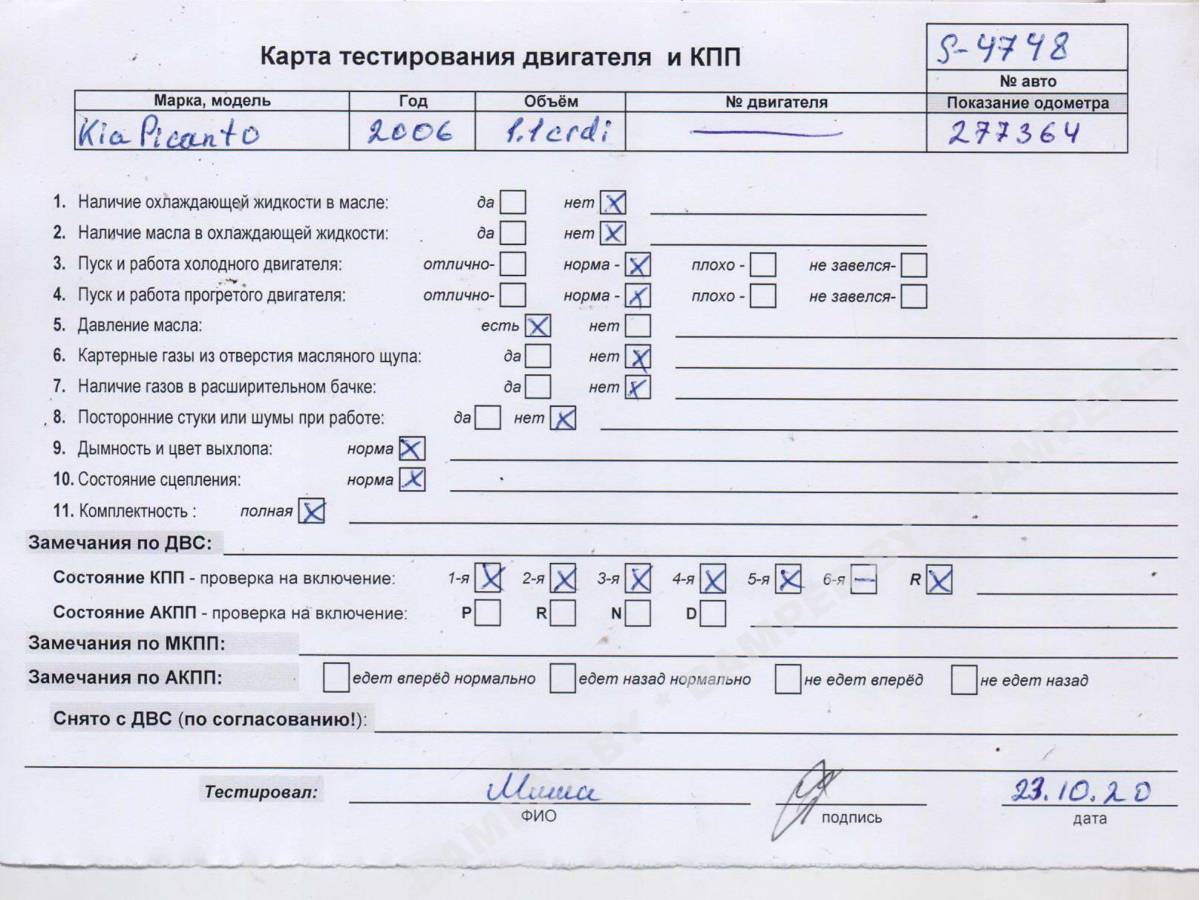 S-4748
Карта тестирования двигателя и КПП
№ авто
Марка, модель Год Объём № двигателя Показание одометра
Kia Picanto 2006 1.1 crdi — 277364
1. Наличие охлаждающей жидкости в масле: да нет X
2. Наличие масла в охлаждающей жидкости: да нет X
3. Пуск и работа холодного двигателя: отлично- норма - X плохо - не завелся-
4. Пуск и работа прогретого двигателя: отлично- норма - X плохо - не завелся-
5. Давление масла: есть X нет
6. Картерные газы из отверстия масляного щупа: да нет X
7. Наличие газов в расширительном бачке: да нет X
8. Посторонние стуки или шумы при работе: да нет X
9. Дымность и цвет выхлопа: норма X
10. Состояние сцепления: норма X
11. Комплектность : полная X
Замечания по ДВС:
Состояние КПП - проверка на включение: 1-я X 2-я X 3-я X 4-я X 5-я X 6-я — R X
Состояние АКПП - проверка на включение: P R N D
Замечания по МКПП:
Замечания по АКПП: едет вперёд нормально едет назад нормально не едет вперёд не едет назад
Снято с ДВС (по согласованию!):
Тестировал: Миша 23.10.20
ФИО подпись дата
BAMPER.BY * BAMPER.BY * BAMPER.BY * BAMPER.BY